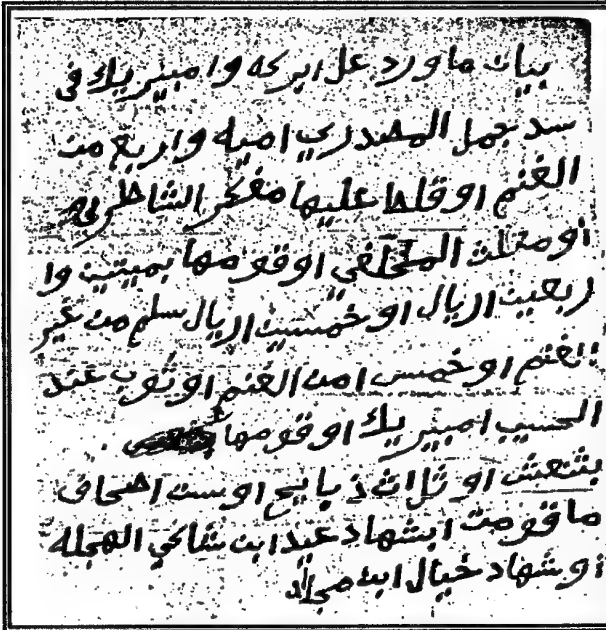 بيان ما ورد عل ابركه وامبيريك في
سد جمل المصدري اميه واربع من
الغنم او قلط عليها مفكر الشاطري
او مثلث المخلفي او قومها بميتين وا
ربعين اريال او خمسين اريال سلم من غير
الغنم او خمس امن الغنم او ثوب عند
الحسيب امبيريك او قومها
بثنعش او ثلاث ذبايح او ست اصحاف
ما قومت ابشهاد عيد ابن شالحي الهجله
او شهاد خيال ابن مجلاد